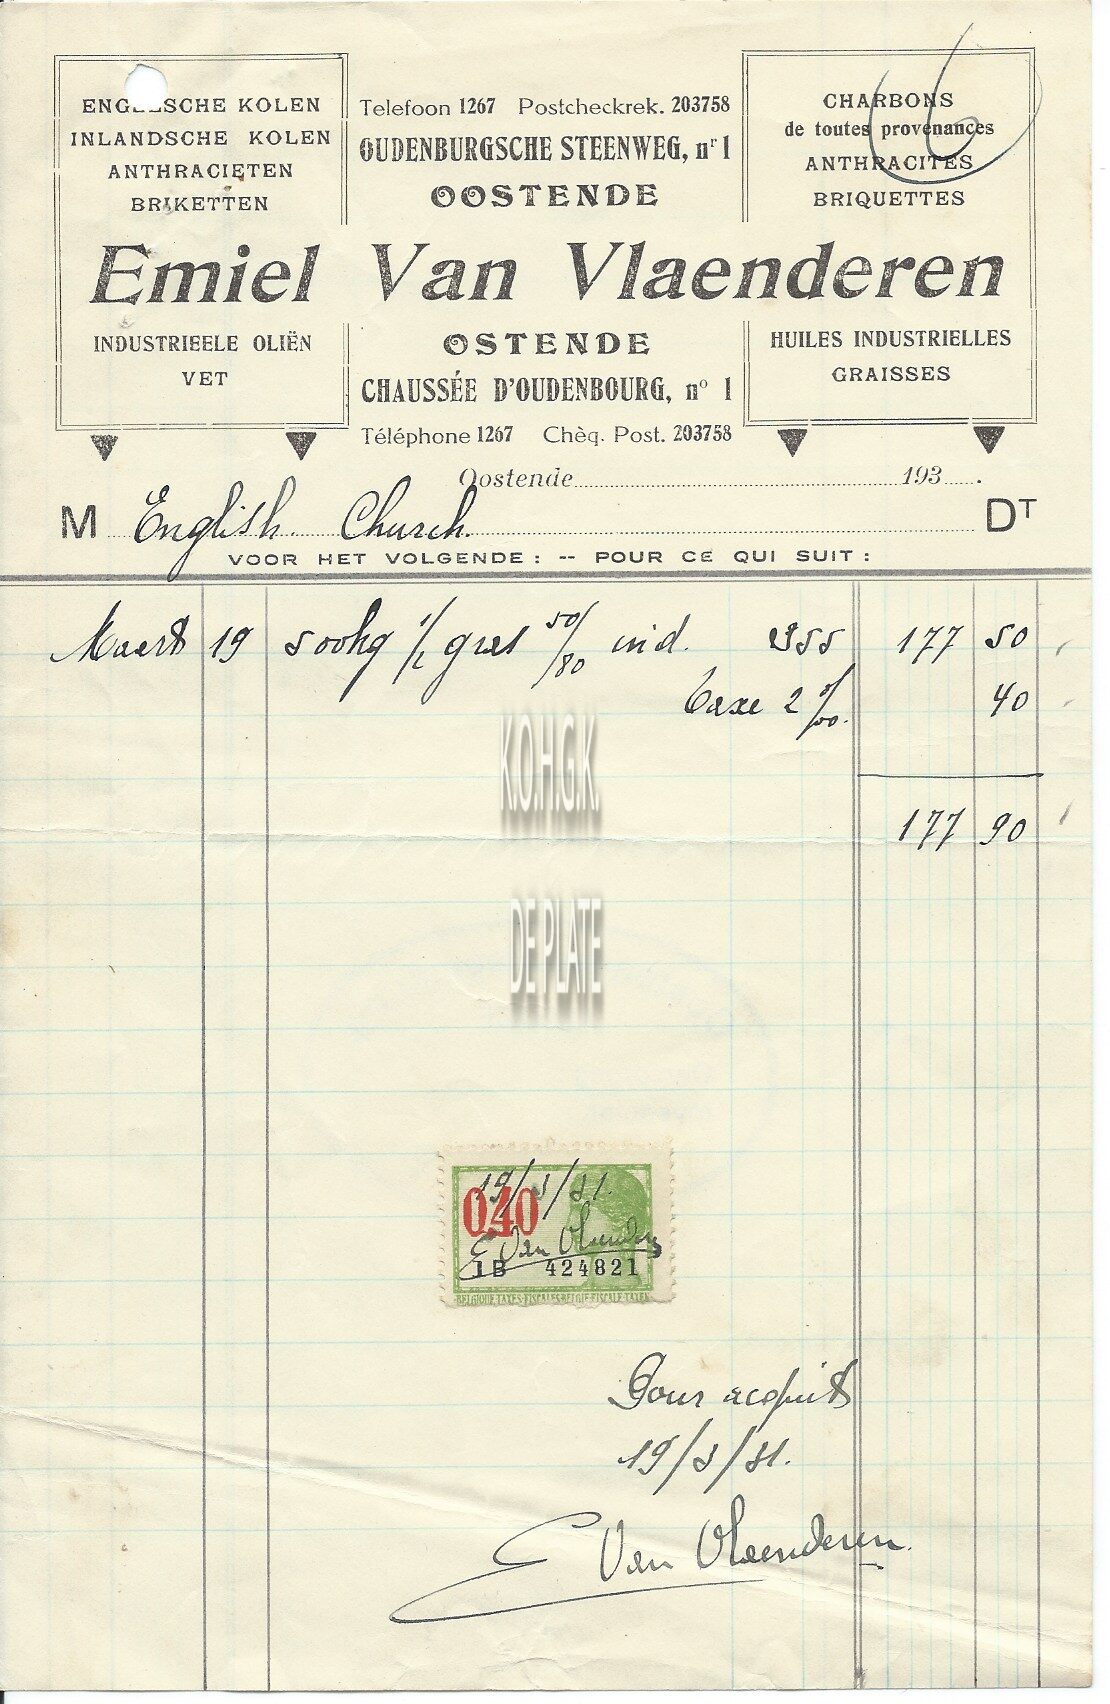 ENGELSCHE KOLEN
INLANDSCHE KOLEN
ANTHRACIETEN
BRIKETTEN
Telefoon 1267 Postcheckrek. 203758
OUDENBURGSCHE STEENWEG, nr 1
OOSTENDE
CHARBONS
de toutes provenances
ANTHRACITES
BRIQUETTES
6
Emiel Van Vlaenderen
INDUSTRIEELE OLIËN
VET
OSTENDE
CHAUSSÉE D'OUDENBOURG, no 1
Téléphone 1267 Chèq. Post. 203758
HUILES INDUSTRIELLES
GRAISSES
Oostende 193 .
M English Church. DT
VOOR HET VOLGENDE : -- POUR CE QUI SUIT :
Maart 19 500kg 1/2 gras 50/80 ind. 355 177 50
taxe 2 o/oo. 40
177 90
K.O.H.G.K.
DE PLATE
0.40
19/3/31.
E Van Vlaenderen
1B 424821
BELGIQUE-TAXES-FISCALES-BELGIE-FISCALE-TAXEN
Pour acquit
19/3/31.
E Van Vlaenderen.